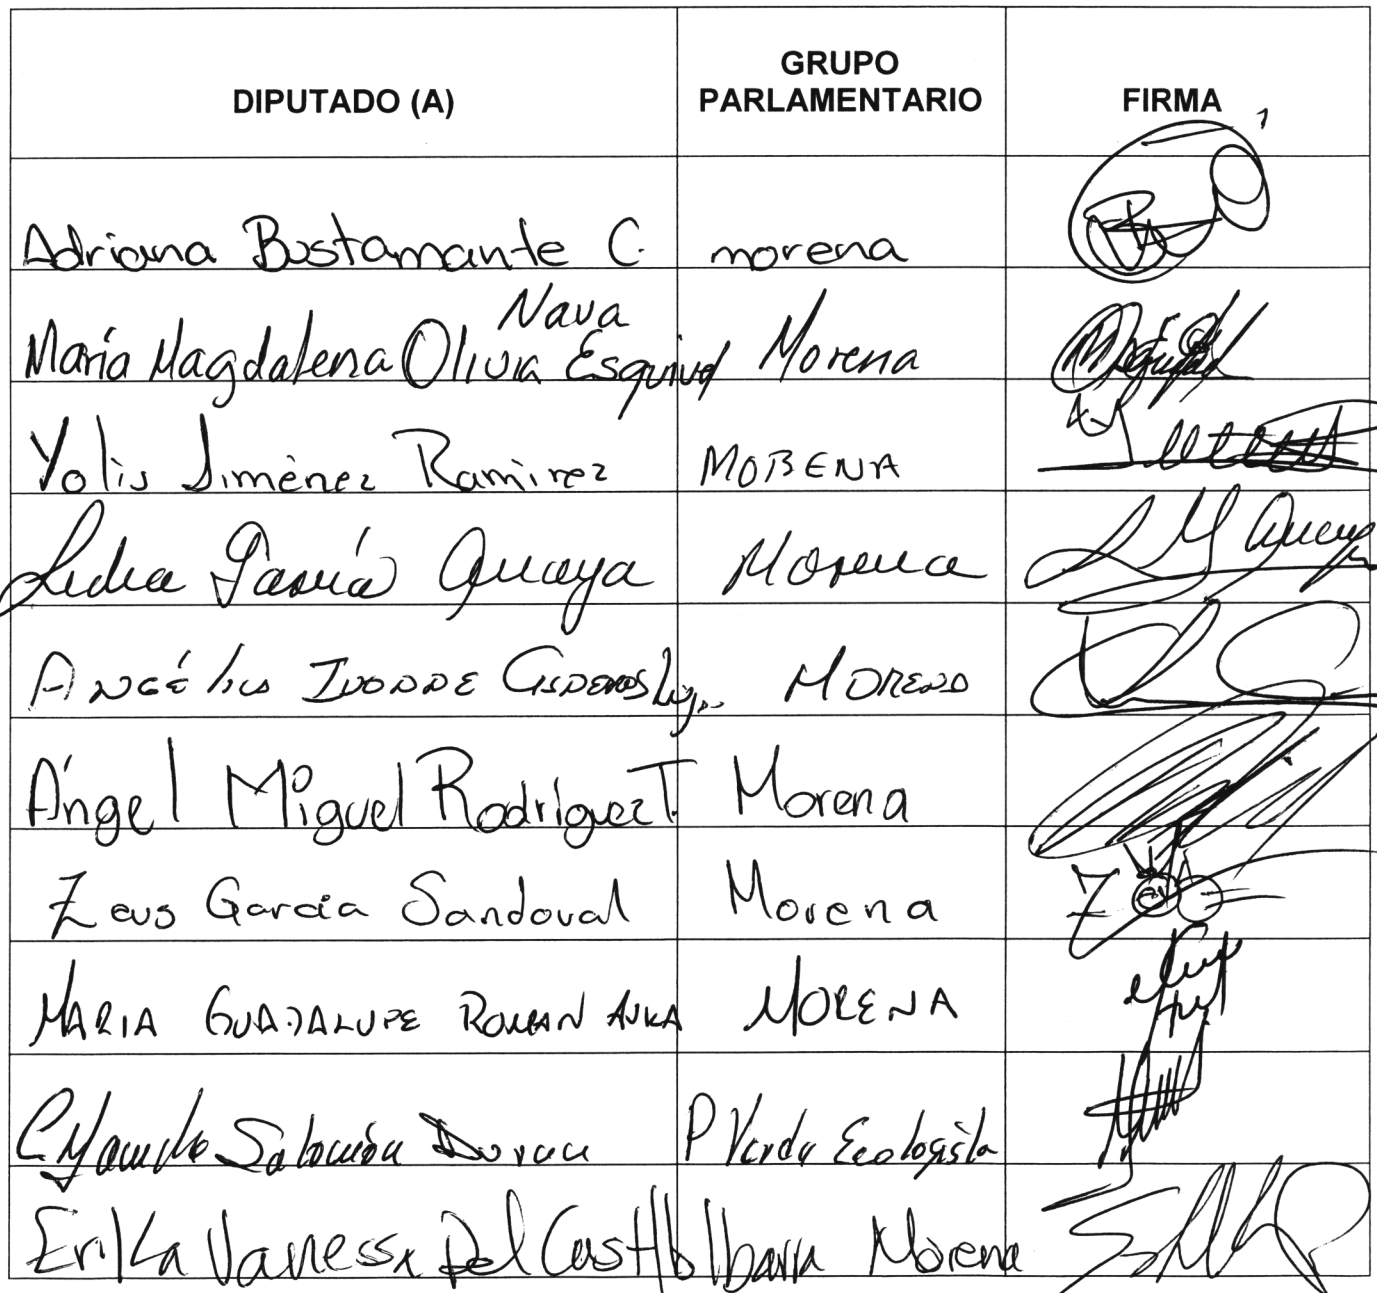 DIPUTADO (A)
GRUPO
PARLAMENTARIO
FIRMA
Adriana Bustamante C. morena
Nava
María Magdalena Olivia Esquivel Morena
Yolis Jiménez Ramirez MORENA
Lidia García Anaya Morena
ANGÉlica IVONNE CISNEROS Luján MORENA
Ángel Miguel Rodríguez T. Morena
Zeus García Sandoval Morena
MARIA GUADALUPE ROMAN MORENA
Salomón Durán P Verde Ecologista
Erika Vanessa Del Castillo Ibarra Morena